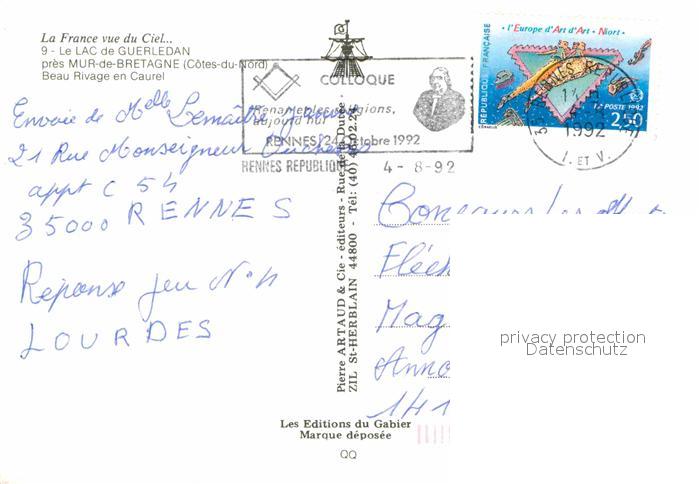 La France vue du Ciel...
9 - Le LAC de GUERLEDAN
près MUR-de-BRETAGNE (Côtes-du-Nord)
Beau Rivage en Caurel
COLLOQUE
aujourd'hui
RENNES 24 Octobre 1992
RENNES REPUBLIQUE
4 - 8 - 92
l'Europe d'Art d'Art - Niort
RÉPUBLIQUE FRANÇAISE
LA POSTE 1992
2,50
RENNES
1992
I. ET V.
Envoie de Melle Lemaître
21 Rue Monseigneur
appt C 54
35000 RENNES
Réponse jeu N° 11
LOURDES
Pierre ARTAUD & Cie - éditeurs - Rue de la Durée -
ZIL St-HERBLAIN 44800 - Tél: (40) 46.02.24
Concours les
Fléch
Mag
Anno
141
privacy protection
Datenschutz
Les Editions du Gabier
Marque déposée
QQ